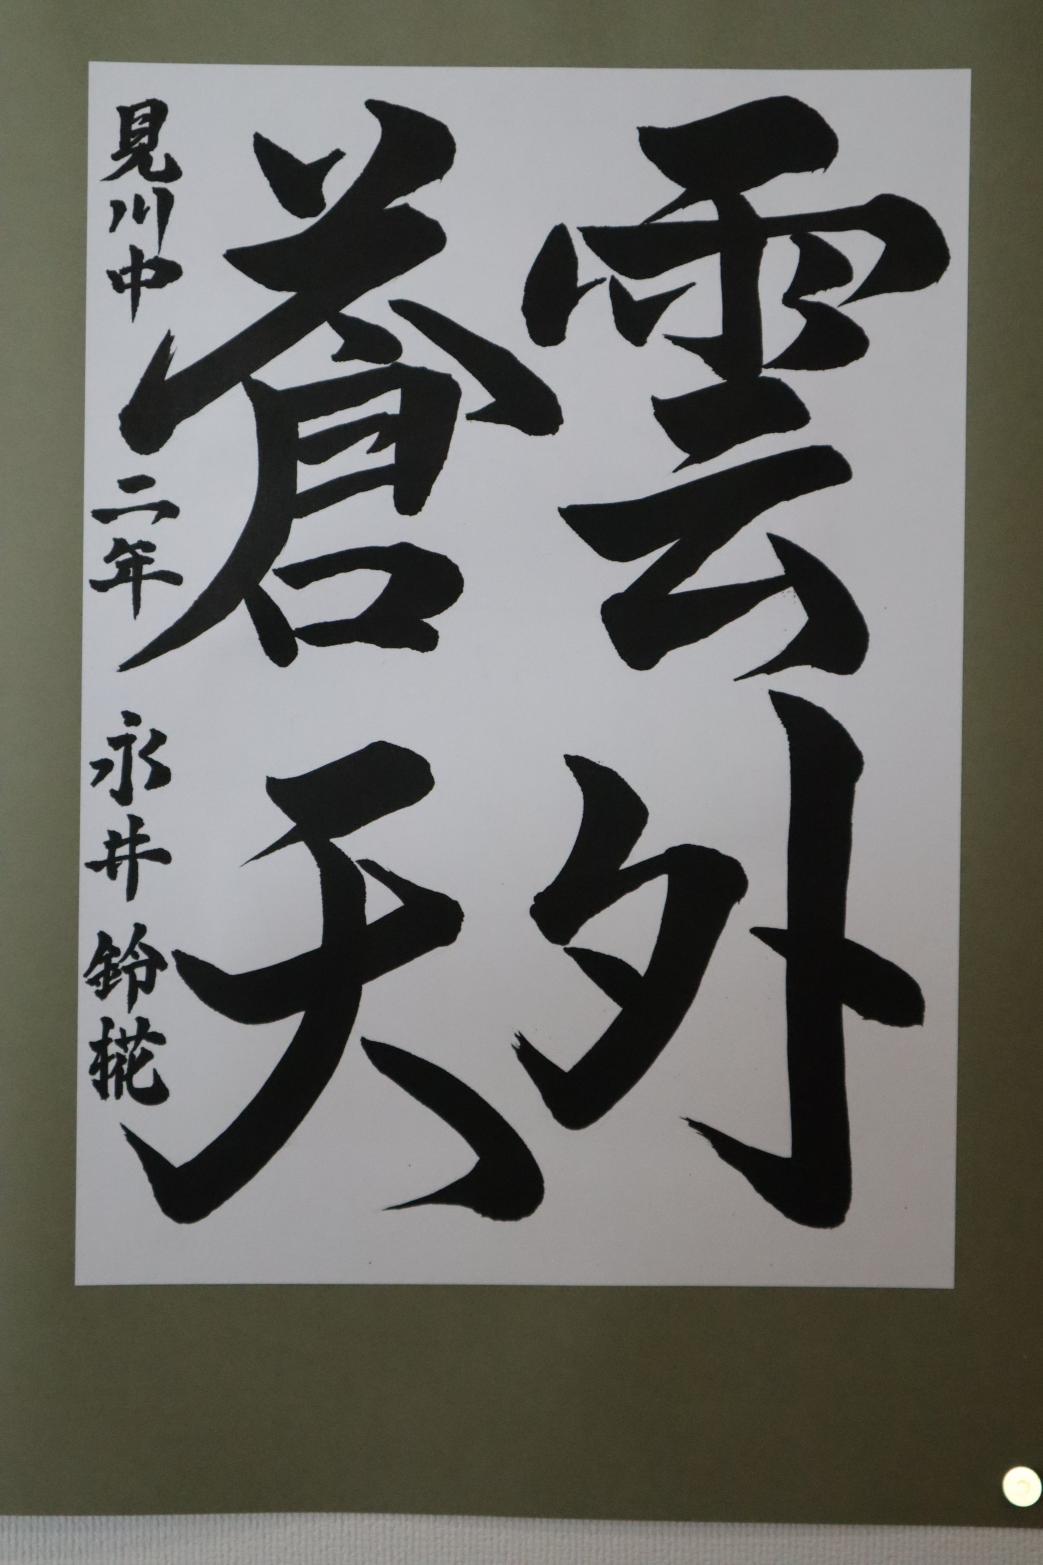 雲外
蒼天
見川中 二年 永井鈴椛